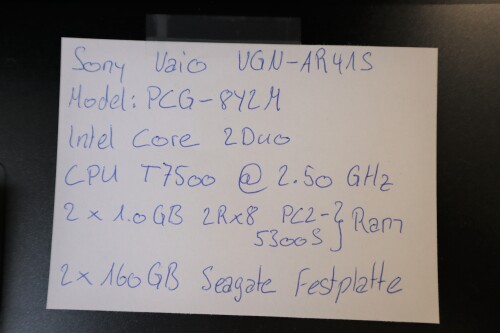 Sony Vaio VGN-AR41S
Model: PCG-8Y2M
Intel Core 2Duo
CPU T7500 @ 2.50 GHz
2 x 1.0GB 2Rx8 PC2- } Ram
5300S
2x160GB Seagate Festplatte